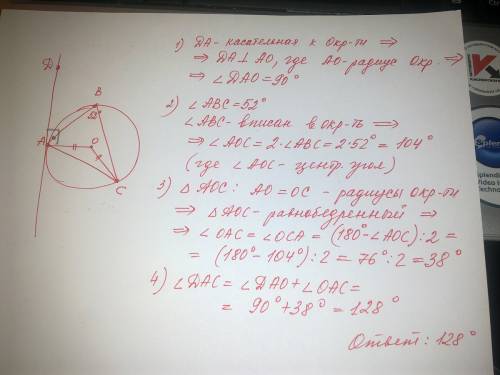 1) DA - касательная к Окр-ти ⇒
⇒ DA ⊥ AO, где AO - радиус Окр. ⇒
⇒ ∠DAO = 90°
2) ∠ABC = 52°
∠ABC - вписан в окр-ть ⇒
⇒ ∠AOC = 2·∠ABC = 2·52° = 104°
(где ∠AOC - центр. угол)
3) △AOC: AO = OC - радиусы Окр-ти
⇒ △AOC - равнобедренный ⇒
⇒ ∠OAC = ∠OCA = (180° - ∠AOC) : 2 =
= (180° - 104°) : 2 = 76° : 2 = 38°
4) ∠DAC = ∠DAO + ∠OAC =
= 90° + 38° = 128°
Ответ: 128°
D
B
52°
A
O
C
Splendid
Video In